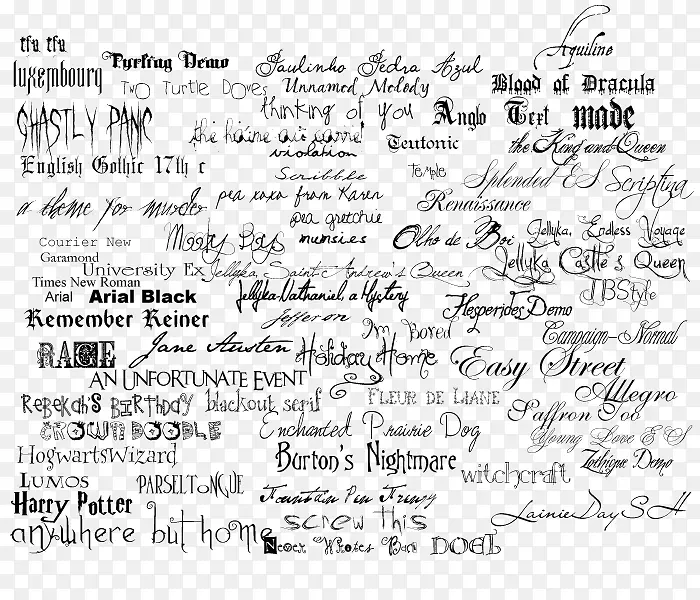 Aquiline
tfu tfu
Paulinho Pedra Azul
luxembourg
Two Turtle Doves
Unnamed Melody
Blood of Dracula
thinking of you
Anglo Text
made
GHASTLY PANIC
violation
Teutonic
the King and Queen
English Gothic 17th c
Scribble
Temple
Splended ES
Scriptina
pea xoxo from Karen
Renaissance
a theme for murder
pea gretchie
Courier New
mumsies
Olho de Boi
Jellyka, Endless Voyage
Garamond
University Ex
Jellyka, Saint-Andrew's Queen
Jellyka Castle's Queen
Times New Roman
Arial
Arial Black
Jellyka-Nathaniel, a Mystery
Hesperides Demo
Remember Reiner
Jefferson
I'm Bored
Campaign-Normal
RAGE
Jane Austen
Holiday Home
Easy Street
AN UNFORTUNATE EVENT
Allegro
Rebekah's Birthday
blackout serif
Fleur de Liane
Saffron Too
CROWN DOODLE
Enchanted Prairie Dog
Young Love ES
HogwartsWizard
Burton's Nightmare
Zothique Demo
witchcraft
Lumos
Parseltongue
Harry Potter
Fountain Pen Frenzy
LainieDaySH
screw this
anywhere but home
Never Writes Back
DOEL